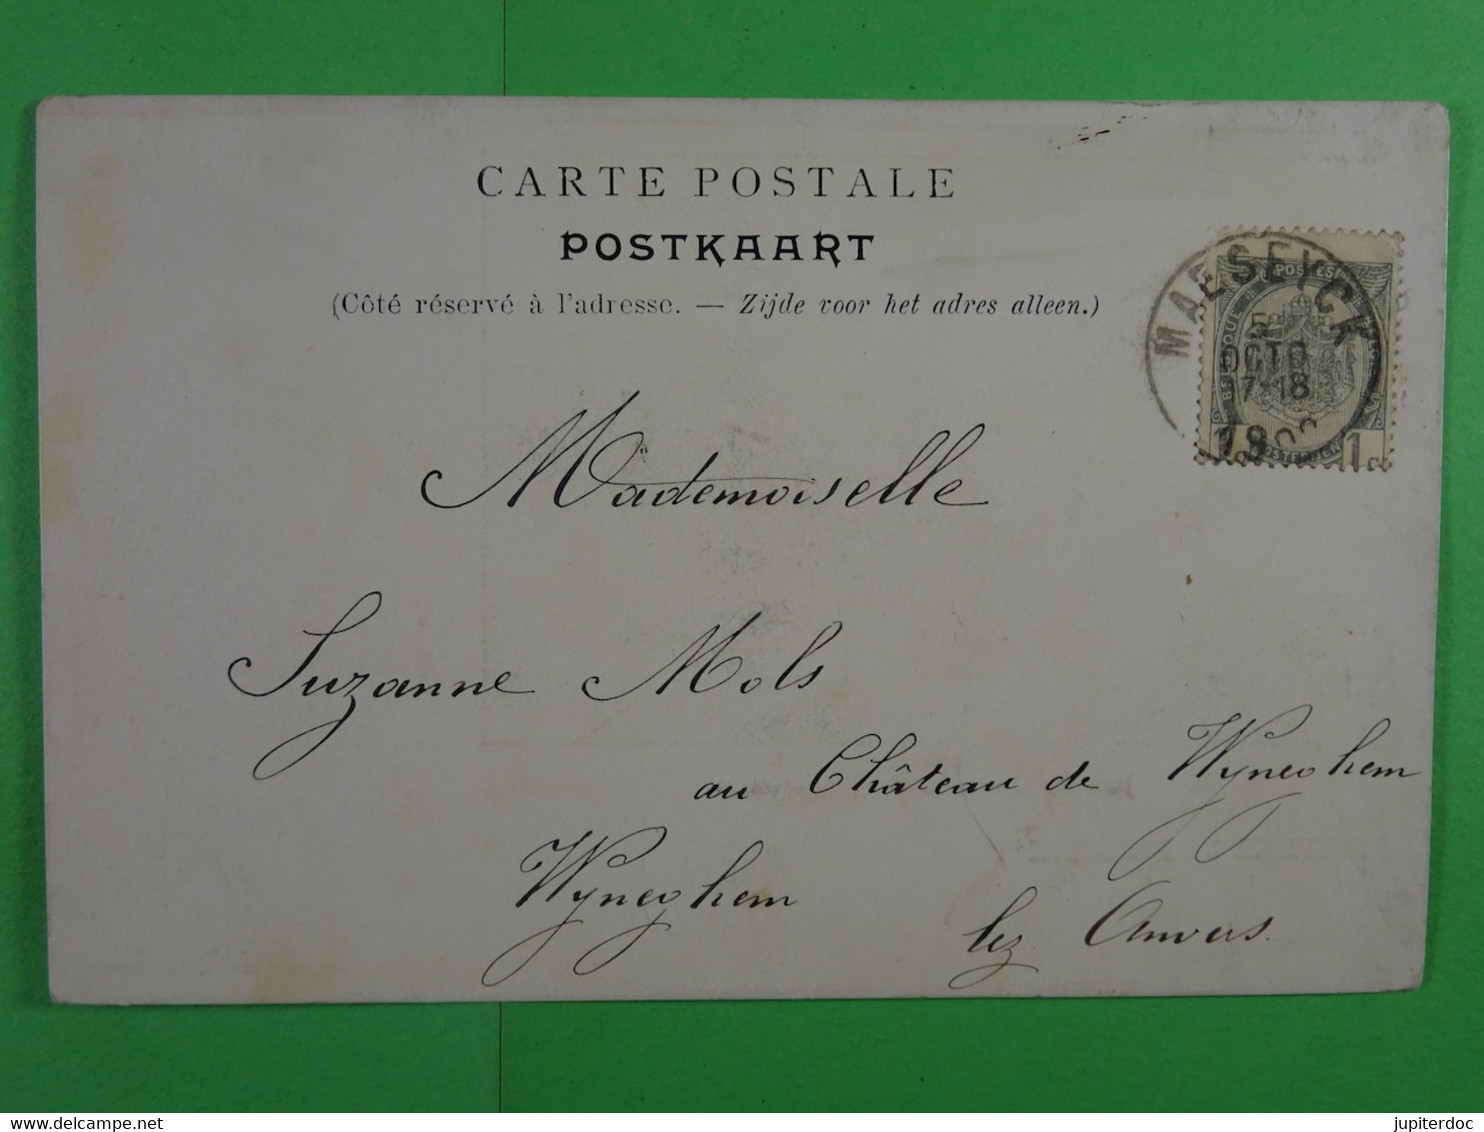 CARTE POSTALE
POSTKAART
(Côté réservé à l'adresse. — Zijde voor het adres alleen.)
MAESEYCK
5
OCTO
17-18
POSTES
1
Mademoiselle
Suzanne Mols
au Château de Wyneghem
Wyneghem
lez Anvers.
jupiterdoc